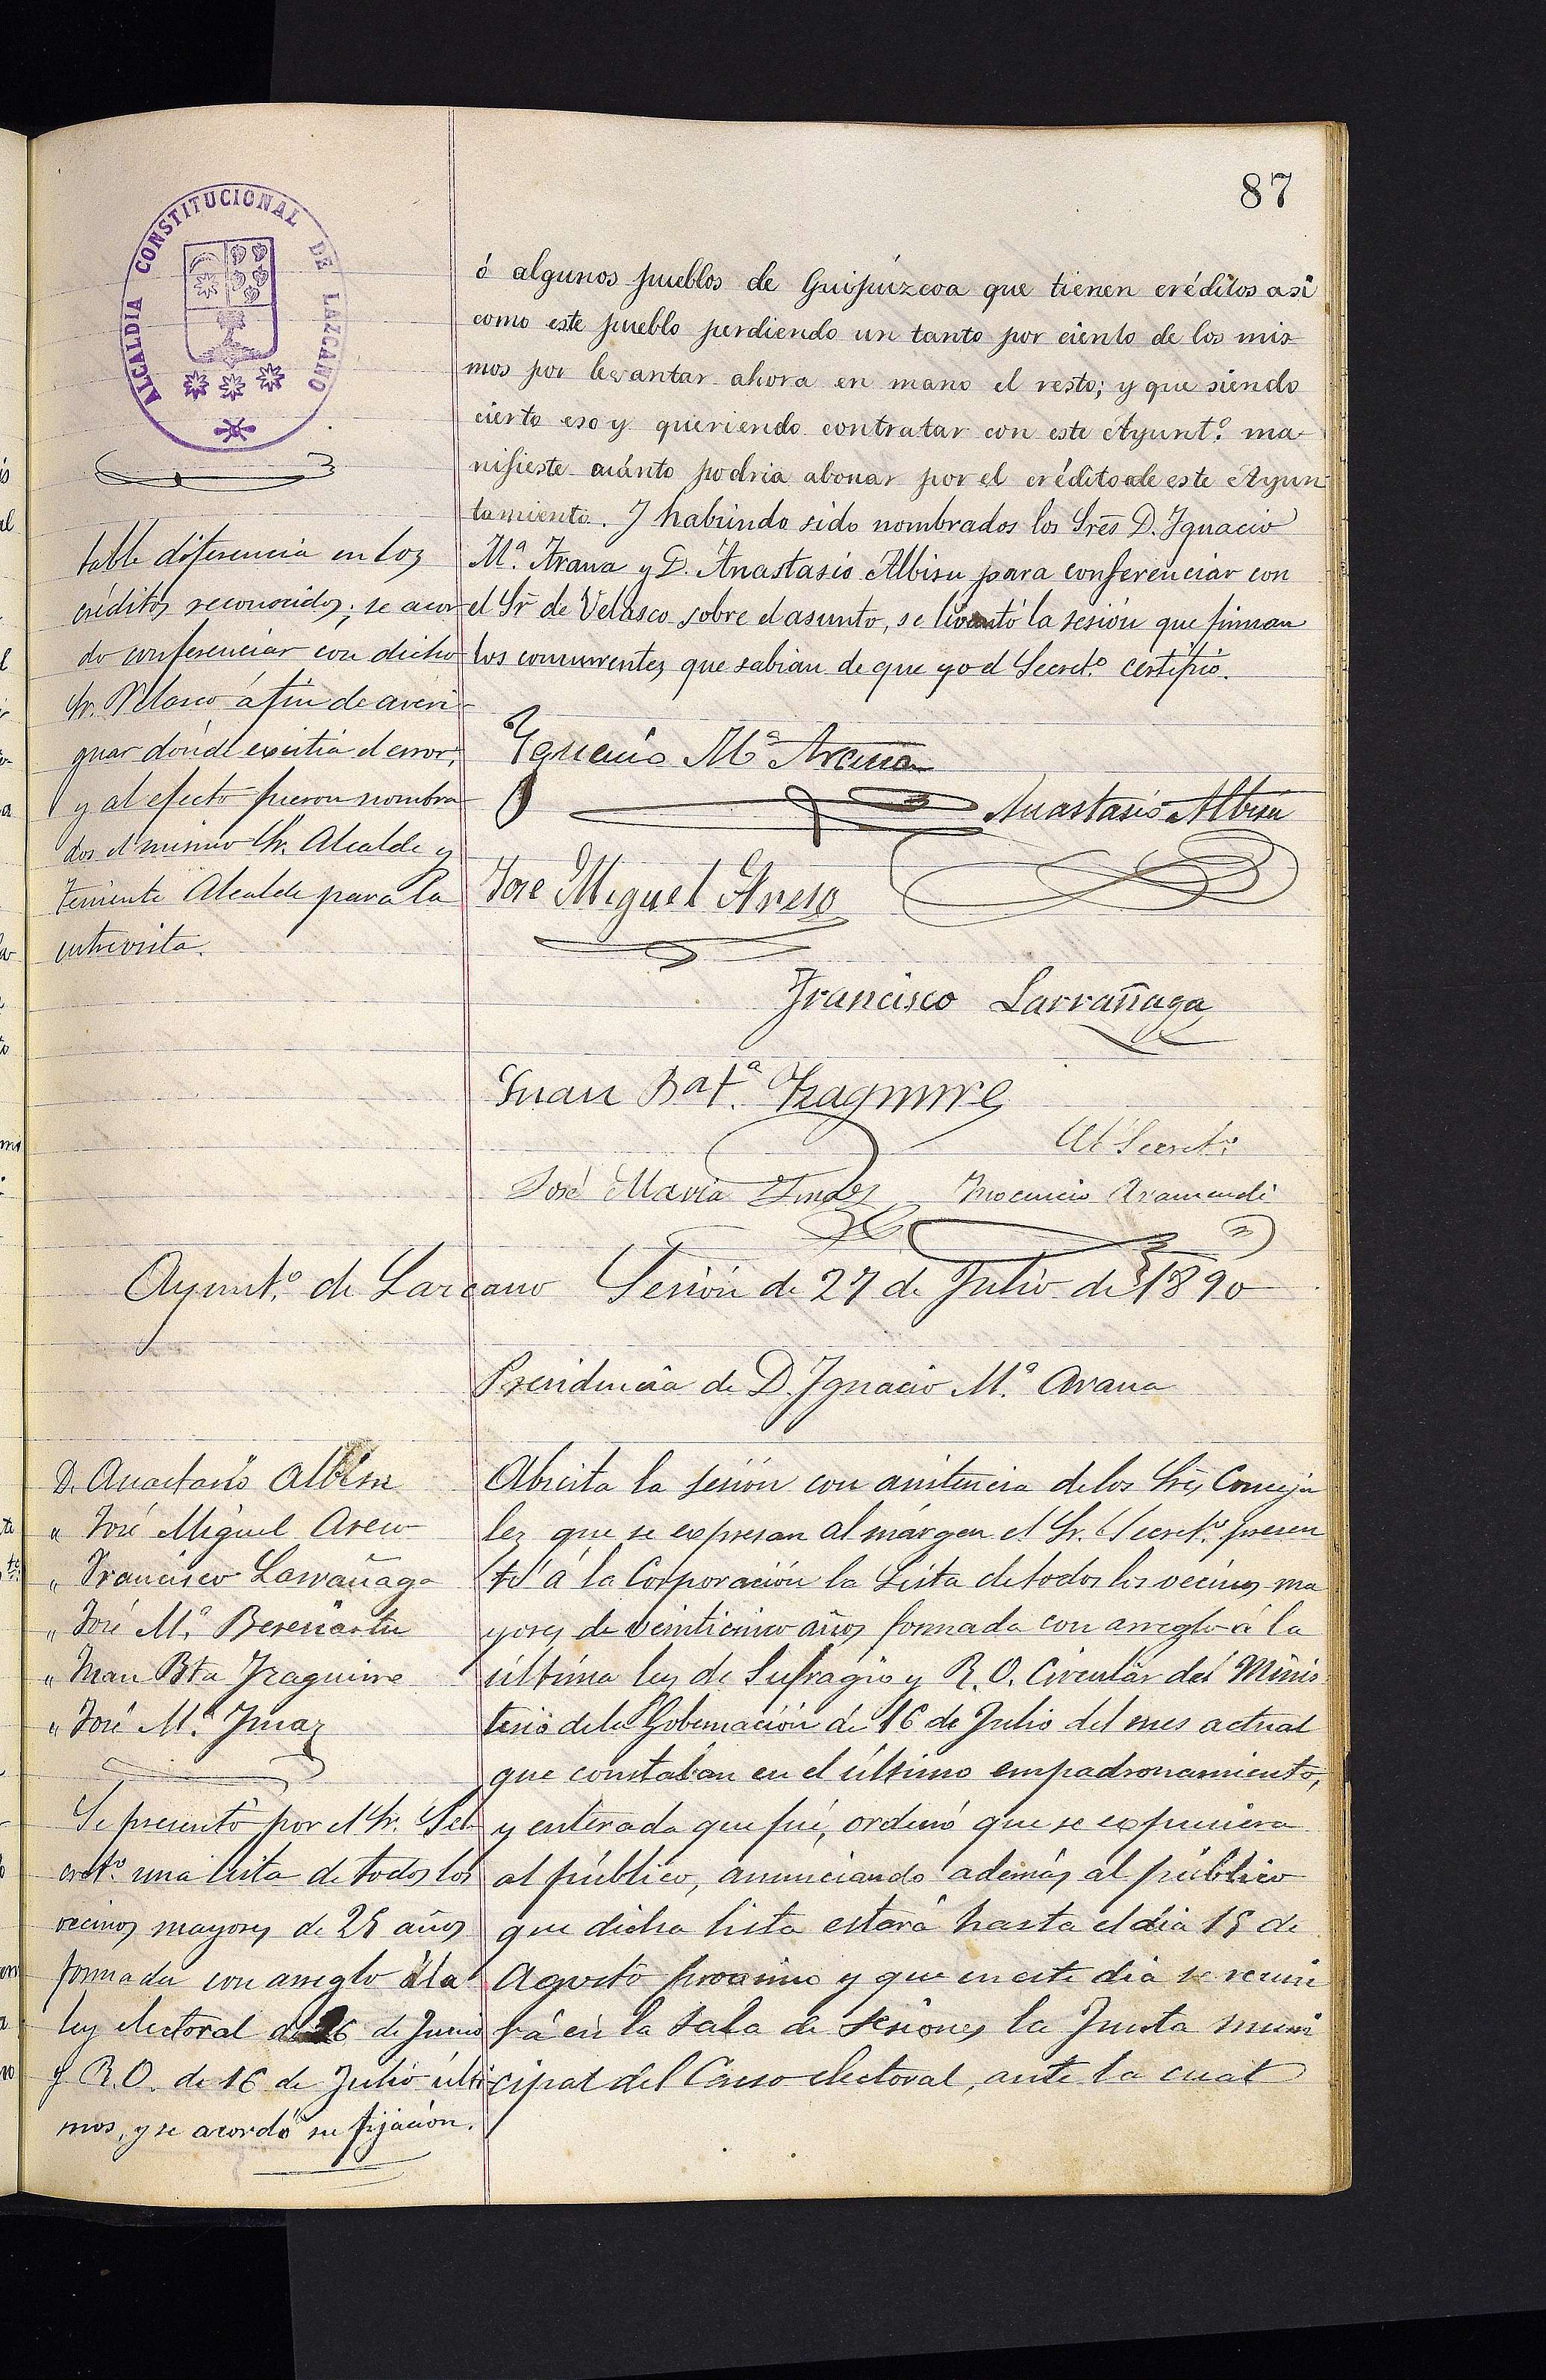 87
ALCALDIA CONSTITUCIONAL DE LAZCANO
table diferencia en los
créditos reconocidos; se acor
do conferenciar con dicho
Sr. Velasco á fin de averi-
guar donde existia el error,
y al efecto fueron nombra
dos el mismo Sr. Alcalde y
teniente Alcalde para la
entrevista.
ó algunos pueblos de Guipúzcoa que tienen créditos asi
como este pueblo perdiendo un tanto por ciento de los mis-
mos por levantar ahora en mano el resto; y que siendo
cierto eso y queriendo contratar con este Ayunt.º ma-
nifieste cuánto podria abonar por el crédito de este Ayun
tamiento. Y habiendo sido nombrados los Sres D. Ignacio
Mª. Arana y D. Anastasio Albisu para conferenciar con
el Sr de Velasco sobre el asunto, se levantó la sesión que firman
los concurrentes que sabian de que yo el Secret.º certifico.
Ygnacio Mª Arana
Anastasio Albisu
Jose Miguel Areso
Francisco Larrañaga
Juan Bat.ª Yzaguirre
El Secret.º
José Maria Ymaz Inocencio Aramendi
Ayunt.º de Lazcano Sesión de 27 de Julio de 1890
Presidencia de D. Ignacio M.ª Arana
D. Anastasio Albisu
" José Miguel Areso
" Francisco Larrañaga
" José M.ª Bereciartu
" Juan Bta Yzaguirre
" José M.ª Ymaz
Se presentó por el Sr. Se
cret.º una lista de todos los
vecinos mayores de 25 años
formada con arreglo á la
ley electoral de 26 de Junio
y R.O. de 16 de Julio últi
mos, y se acordó su fijación.
Abierta la sesión con asistencia de los Sres Conceja
les que se expresan al márgen el Sr. Secret.º presen
tó á la Corporación la Lista de todos los vecinos ma
yores de veinticinco años formada con arreglo á la
última ley de Sufragio y R.O. Circular del Minis
terio de la Gobernación de 16 de Julio del mes actual
que constaban en el último empadronamiento,
y enterada que fué, ordenó que se expusiera
al público, anunciando además al público
que dicha lista estará hasta el dia 15 de
Agosto proximo y que en este dia se reuni
rá en la Sala de Sesiones la Junta muni
cipal del Censo electoral, ante la cual